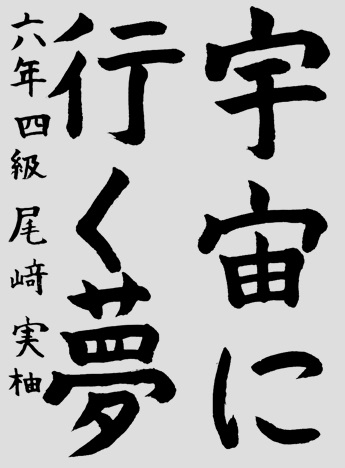 宇宙に
行く夢
六年四級 尾﨑 実柚